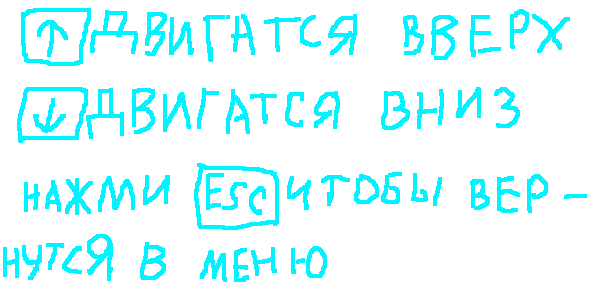 ↑ ДВИГАТСЯ ВВЕРХ
↓ ДВИГАТСЯ ВНИЗ
НАЖМИ ESC ИТОБЫ ВЕР-
НУТСЯ В МЕНЮ